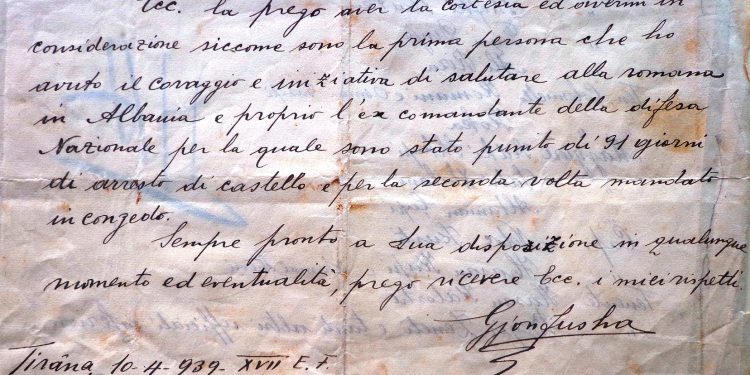 Ecc. la prego aver la cortesia ed avermi in
considerazione siccome sono la prima persona che ho
avuto il coraggio e iniziativa di salutare alla romana
in Albania e proprio l'ex comandante della difesa
Nazionale per la quale sono stato punito di 91 giorni
di arresto di castello e per la seconda volta mandato
in congedo.
Sempre pronto a Sua disposizione in qualunque
momento ed eventualità, prego ricevere Ecc. i miei rispetti.
Gjon Jusha
Tirana, 10-4-939-XVII E.F.